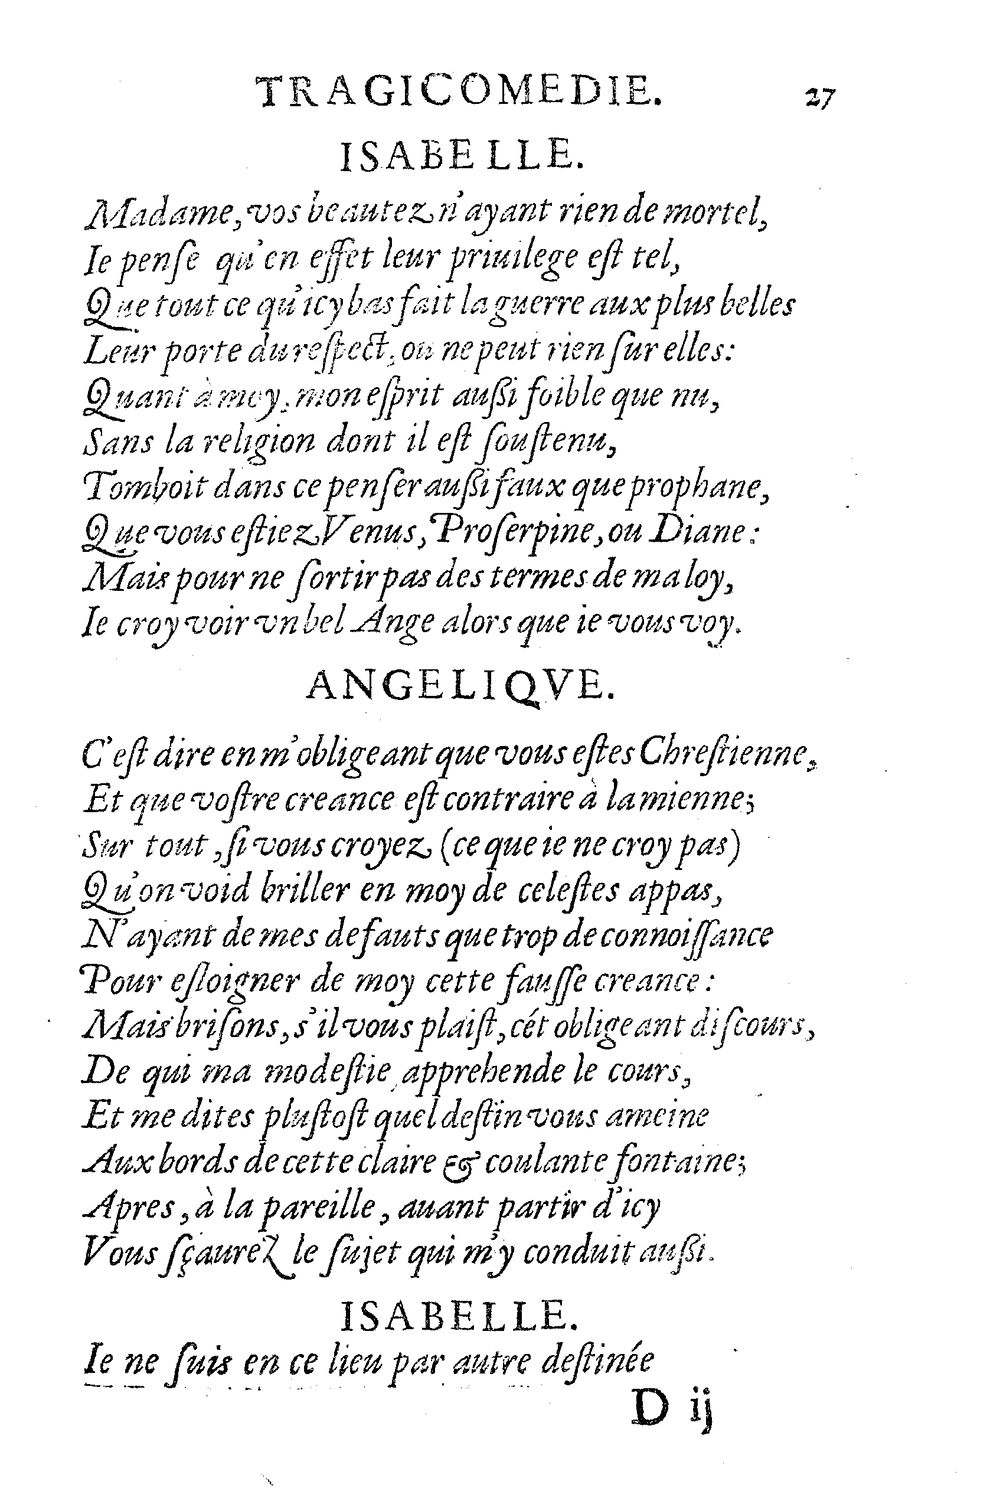 TRAGICOMEDIE. 27
ISABELLE.
Madame, vos beautez n'ayant rien de mortel,
Ie penſe qu'en effet leur priuilege eſt tel,
Que tout ce qu'icy bas fait la guerre aux plus belles
Leur porte du reſpect, ou ne peut rien ſur elles:
Quant à moy, mon eſprit auſſi foible que nu,
Sans la religion dont il eſt ſouſtenu,
Tomboit dans ce penſer auſſi faux que prophane,
Que vous eſtiez Venus, Proſerpine, ou Diane:
Mais pour ne ſortir pas des termes de ma loy,
Ie croy voir vn bel Ange alors que ie vous voy.
ANGELIQVE.
C'eſt dire en m'obligeant que vous eſtes Chreſtienne,
Et que voſtre creance eſt contraire à la mienne;
Sur tout, ſi vous croyez (ce que ie ne croy pas)
Qu'on void briller en moy de celeſtes appas,
N'ayant de mes defauts que trop de connoiſſance
Pour eſloigner de moy cette fauſſe creance:
Mais briſons, s'il vous plaiſt, cét obligeant diſcours,
De qui ma modeſtie apprehende le cours,
Et me dites pluſtoſt quel deſtin vous ameine
Aux bords de cette claire & coulante fontaine;
Apres, à la pareille, auant partir d'icy
Vous ſçaurez le ſujet qui m'y conduit auſſi.
ISABELLE.
Ie ne ſuis en ce lieu par autre deſtinée
D ij